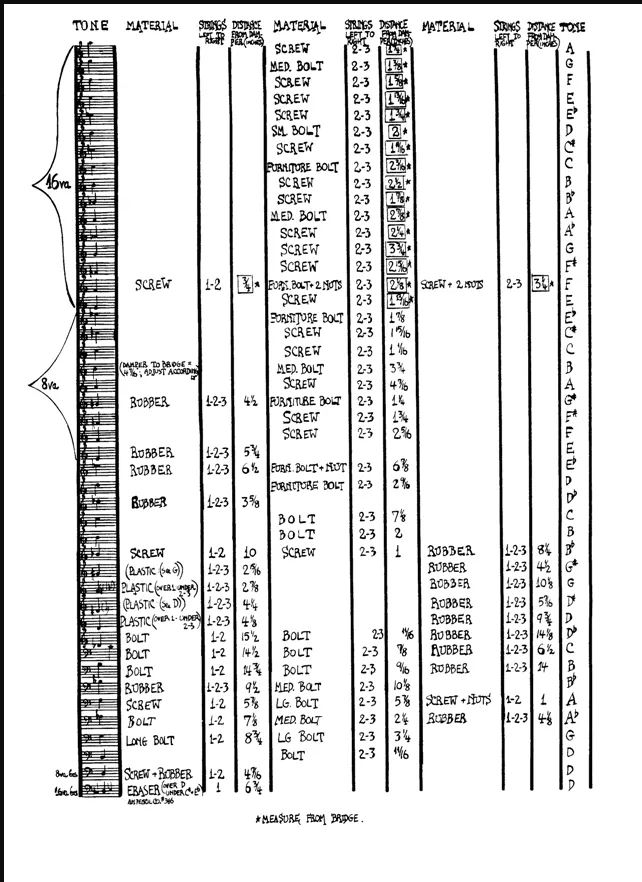 TONE MATERIAL STRINGS LEFT TO RIGHT DISTANCE FROM DAMPER (INCHES) MATERIAL STRINGS LEFT TO RIGHT DISTANCE FROM DAMPER (INCHES) MATERIAL STRINGS LEFT TO RIGHT DISTANCE FROM DAMPER (INCHES) TONE
SCREW 2-3 * A
MED. BOLT 2-3 1 3/8 * G
SCREW 2-3 1 5/8 * F
SCREW 2-3 * E
SCREW 2-3 1 3/4 * E♭
SM. BOLT 2-3 2 * D
SCREW 2-3 * C#
FURNITURE BOLT 2-3 * C
16va
SCREW 2-3 2 1/2 * B
SCREW 2-3 1 7/8 * B♭
MED. BOLT 2-3 2 7/8 * A
SCREW 2-3 2 1/4 * A♭
SCREW 2-3 3 3/4 * G
SCREW 2-3 * F#
SCREW 1-2 3/4 * FURN. BOLT + 2 NUTS 2-3 2 1/8 * SCREW + 2 NUTS 2-3 * F
SCREW 2-3 * E
FURNITURE BOLT 2-3 1 7/8 E♭
SCREW 2-3 1 15/16 C#
SCREW 2-3 1 1/16 C
(DAMPER TO BRIDGE = 4 7/16; ADJUST ACCORDING MED. BOLT 2-3 3 3/4 B
8va
SCREW 2-3 4 7/16 A
RUBBER 1-2-3 4 1/2 FURNITURE BOLT 2-3 1 1/4 G#
SCREW 2-3 1 3/4 F#
SCREW 2-3 2 5/16 F
RUBBER 1-2-3 5 3/4 E
RUBBER 1-2-3 6 1/2 FURN. BOLT + NUT 2-3 6 7/8 E♭
FURNITURE BOLT 2-3 D
RUBBER 1-2-3 3 5/8 D♭
BOLT 2-3 7 1/8 C
BOLT 2-3 2 B
SCREW 1-2 10 SCREW 2-3 1 RUBBER 1-2-3 8 1/4 B♭
(PLASTIC (See G)) 1-2-3 2 5/16 RUBBER 1-2-3 4 1/2 G#
PLASTIC (OVER 1 UNDER 2-3) 1-2-3 2 7/8 RUBBER 1-2-3 10 1/8 G
(PLASTIC (See D)) 1-2-3 4 1/4 RUBBER 1-2-3 5 7/16 D#
PLASTIC (OVER 1 - UNDER 2-3) 1-2-3 4 1/8 RUBBER 1-2-3 9 3/4 D
BOLT 1-2 15 1/2 BOLT 2-3 11/16 RUBBER 1-2-3 14 1/8 D♭
BOLT 1-2 14 1/2 BOLT 2-3 7/8 RUBBER 1-2-3 6 1/2 C
BOLT 1-2 14 3/4 BOLT 2-3 9/16 RUBBER 1-2-3 14 B
RUBBER 1-2-3 9 1/2 MED. BOLT 2-3 10 1/8 B♭
SCREW 1-2 5 7/8 LG. BOLT 2-3 5 7/8 SCREW + NUTS 1-2 1 A
BOLT 1-2 7 1/8 MED. BOLT 2-3 2 1/4 RUBBER 1-2-3 4 1/8 A♭
LONG BOLT 1-2 8 3/4 LG BOLT 2-3 3 1/4 G
BOLT 2-3 11/16 D
8va bas SCREW + RUBBER 1-2 4 7/16 D
16va bas ERASER (OVER D UNDER C# + E♭) 1 6 3/4 D
AM. PENCIL CO. #346
*MEASURE FROM BRIDGE.